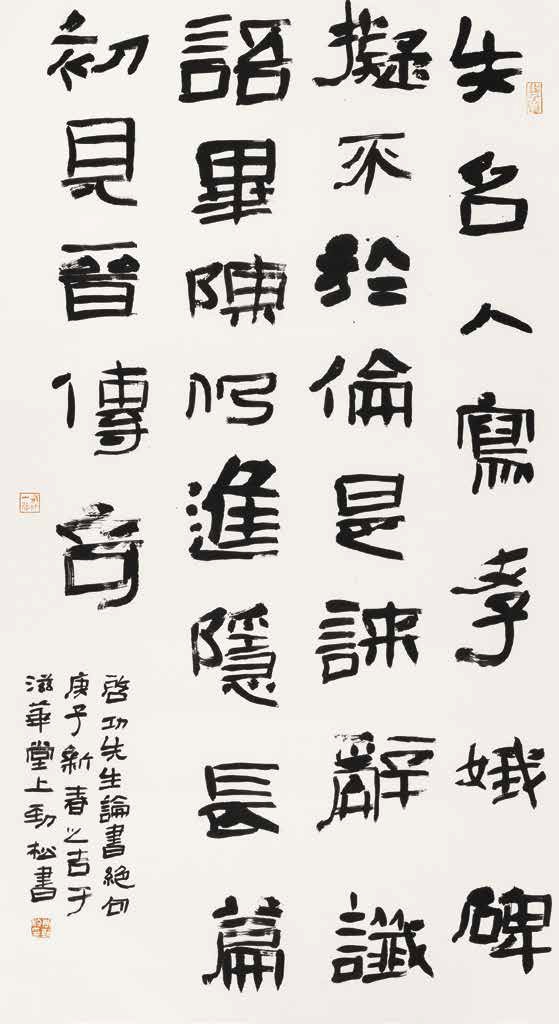 失名人寫孝娥碑
擬不於倫是誄辭讖
語畢陳仍進隱長篇
初見晉傳奇
啓功先生論書絕句
庚子新春之吉于
滋華堂上勁松書